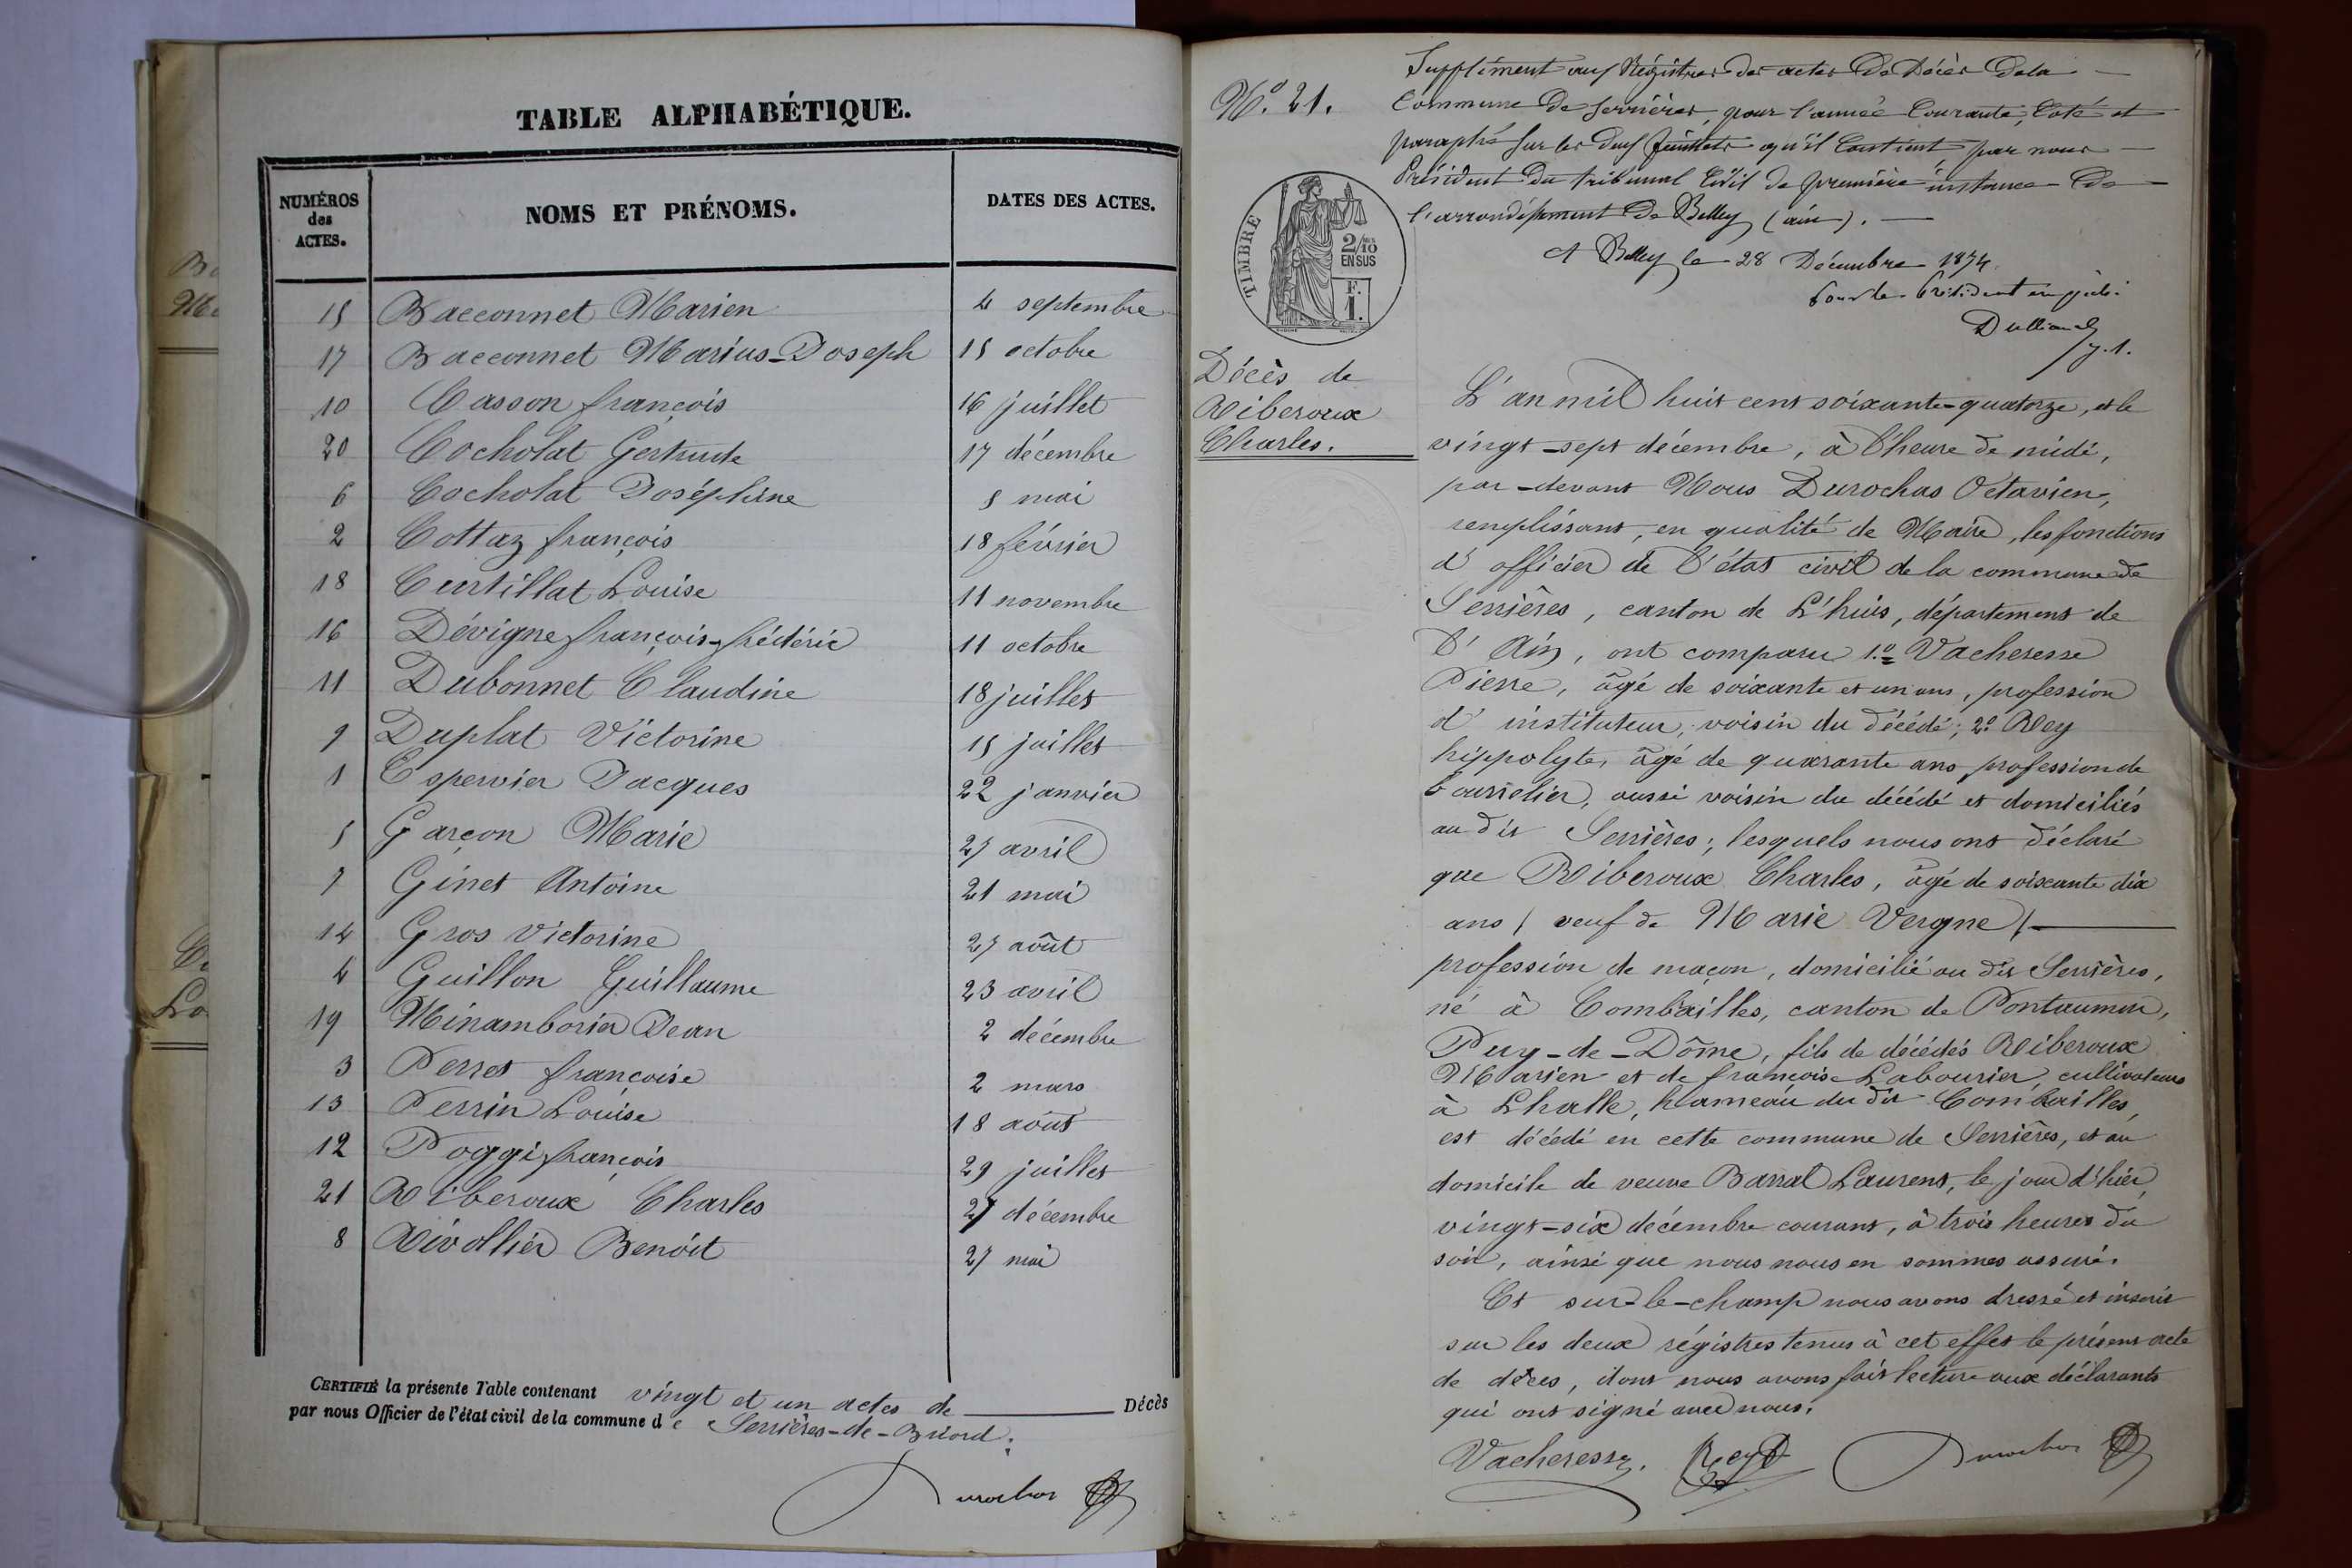 TABLE ALPHABÉTIQUE.
NUMÉROS des ACTES. NOMS ET PRÉNOMS. DATES DES ACTES.
15 Bacconnet Marien 4 septembre
17 Bacconnet Marius-Joseph 15 octobre
10 Casson françois 16 juillet
20 Cocholat Gertrude 17 décembre
6 Cocholat Joséphine 5 mai
2 Cottaz françois 18 février
18 Curtillat Louise 11 novembre
16 Dévigne françois-frédéric 11 octobre
11 Dubonnet Claudine 18 juillet
9 Duplat Victorine 15 juillet
1 Espervier Jacques 22 janvier
5 Garçon Marie 27 avril
7 Ginet Antoine 21 mai
14 Gros Victorine 27 août
4 Guillon Guillaume 23 avril
19 Minamborier Jean 2 décembre
3 Perret françoise 2 mars
13 Perrin Louise 18 août
12 Poggi françois 29 juillet
21 Riberoux Charles 27 décembre
8 Rivollier Benoit 27 mai
CERTIFIÉ la présente Table contenant vingt et un actes de Décès
par nous Officier de l'état civil de la commune de Serrières-de-Briord.
Durochas
Nº. 21.
Supplément aux Régistres des actes De Décès De la
Commune De Serrières, pour l'année Courante, Coté et
paraphé sur les deux feuillets qu'il Contient par nous
Président Du tribunal Civil De première instance De
l'arrondissement De Belley (ain).
A Belley le 28 Décembre 1874.
Pour le Président empêché
TIMBRE
2/10 EN SUS
F. 1.
Décès de
Riberoux
Charles.
L'an mil huit cent soixante-quatorze, et le
vingt-sept décembre, à l'heure de midi,
par-devant Nous Durochas Octavien,
remplissant, en qualité de Maire, les fonctions
d'officier de l'état civil de la commune de
Serrières, canton de L'huis, département de
l'Ain, ont comparu 1.º Vacheresse
Pierre, âgé de soixante et un ans, profession
d'instituteur, voisin du décédé; 2.º Rey
hippolyte, âgé de quarante ans profession de
bourrelier, aussi voisin du décédé et domiciliés
au dit Serrières; lesquels nous ont déclaré
que Riberoux Charles, âgé de soixante dix
ans ( veuf de Marie Vergne )
profession de maçon, domicilié au dit Serrières,
né à Combrailles, canton de Pontaumur,
Puy-de-Dôme, fils de décédés Riberoux
Marien et de françoise Labourier, cultivateurs
à Lhalle, hameau du dit Combrailles,
est décédé en cette commune de Serrières, et au
domicile de veuve Barral Laurent, le jour d'hier,
vingt-six décembre courant, à trois heures du
soir, ainsi que nous nous en sommes assuré.
Et sur-le-champ nous avons dressé et inscrit
sur les deux régistres tenus à cet effet le présent acte
de décès, dont nous avons fait lecture aux déclarants
qui ont signé avec nous.
Vacheresse. Rey Durochas